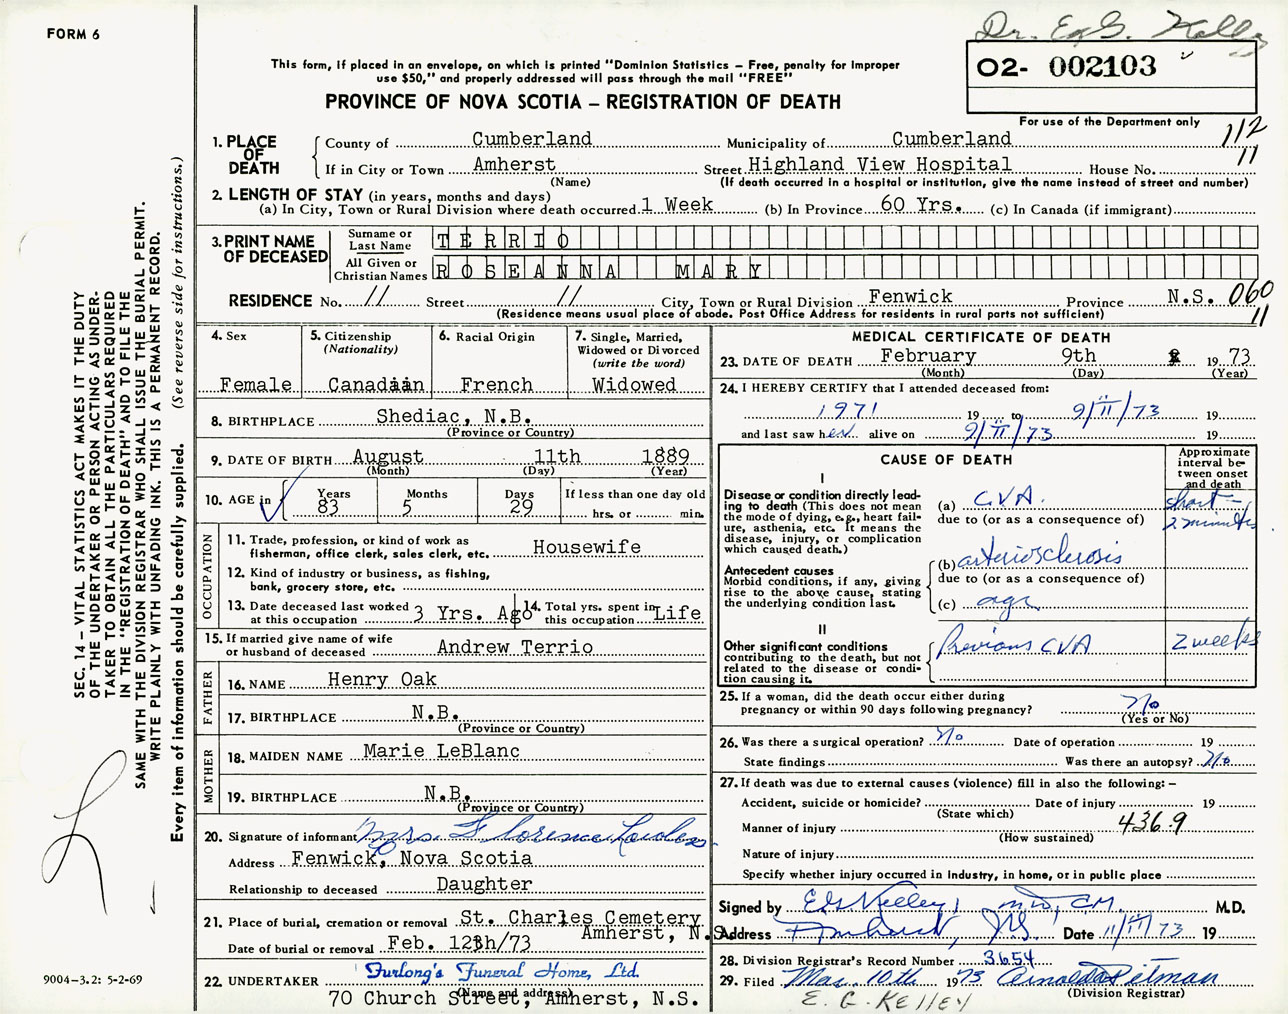 FORM 6
Dr. E. G. Kelley
This form, if placed in an envelope, on which is printed "Dominion Statistics – Free, penalty for improper
use $50," and properly addressed will pass through the mail "FREE"
O2- 002103
PROVINCE OF NOVA SCOTIA – REGISTRATION OF DEATH
For use of the Department only
112
11
1. PLACE OF DEATH
County of Cumberland Municipality of Cumberland
If in City or Town Amherst Street Highland View Hospital House No.
(Name) (If death occurred in a hospital or institution, give the name instead of street and number)
2. LENGTH OF STAY (in years, months and days)
(a) In City, Town or Rural Division where death occurred 1 Week (b) In Province 60 Yrs. (c) In Canada (if immigrant)
3. PRINT NAME OF DECEASED
Surname or Last Name TERRIO
All Given or Christian Names ROSEANNA MARY
RESIDENCE No. // Street // City, Town or Rural Division Fenwick Province N.S. 060
(Residence means usual place of abode. Post Office Address for residents in rural parts not sufficient) 11
4. Sex
Female
5. Citizenship
(Nationality)
Canadian
6. Racial Origin
French
7. Single, Married,
Widowed or Divorced
(write the word)
Widowed
8. BIRTHPLACE Shediac, N.B.
(Province or Country)
9. DATE OF BIRTH August 11th 1889
(Month) (Day) (Year)
10. AGE in
Years Months Days If less than one day old
83 5 29 hrs. or min.
OCCUPATION
11. Trade, profession, or kind of work as
fisherman, office clerk, sales clerk, etc. Housewife
12. Kind of industry or business, as fishing,
bank, grocery store, etc.
13. Date deceased last worked
at this occupation 3 Yrs. Ago
14. Total yrs. spent in
this occupation Life
15. If married give name of wife
or husband of deceased Andrew Terrio
FATHER
16. NAME Henry Oak
17. BIRTHPLACE N.B.
(Province or Country)
MOTHER
18. MAIDEN NAME Marie LeBlanc
19. BIRTHPLACE N.B.
(Province or Country)
20. Signature of informant Mrs Florence
Address Fenwick, Nova Scotia
Relationship to deceased Daughter
21. Place of burial, cremation or removal St. Charles Cemetery
Amherst, N.S.
Date of burial or removal Feb. 12th/73
22. UNDERTAKER Furlong's Funeral Home, Ltd.
(Name and address)
70 Church Street, Amherst, N.S.
MEDICAL CERTIFICATE OF DEATH
23. DATE OF DEATH February 9th 1973
(Month) (Day) (Year)
24. I HEREBY CERTIFY that I attended deceased from:
1971 19 to 9/II/73 19
and last saw her alive on 9/II/73 19
CAUSE OF DEATH
Approximate
interval be-
tween onset
and death
I
Disease or condition directly lead-
ing to death (This does not mean
the mode of dying, e.g., heart fail-
ure, asthenia, etc. It means the
disease, injury, or complication
which caused death.)
(a) CVA. short – 2 minutes
due to (or as a consequence of)
Antecedent causes
Morbid conditions, if any, giving
rise to the above cause, stating
the underlying condition last.
(b) arteriosclerosis
due to (or as a consequence of)
(c) age
II
Other significant conditions
contributing to the death, but not
related to the disease or condi-
tion causing it.
Previous CVA 2 weeks
25. If a woman, did the death occur either during
pregnancy or within 90 days following pregnancy? No
(Yes or No)
26. Was there a surgical operation? No Date of operation 19
State findings Was there an autopsy? No
27. If death was due to external causes (violence) fill in also the following: –
Accident, suicide or homicide? Date of injury 19
(State which)
Manner of injury 436.9
(How sustained)
Nature of injury
Specify whether injury occurred in industry, in home, or in public place
Signed by E G Kelley, M.D, C.M. M.D.
Address Amherst, N.S. Date 11/II/73 19
28. Division Registrar's Record Number 3654
29. Filed Mar. 10th 1973 Arnold Pitman
(Division Registrar)
E. G. KELLEY
SEC. 14 – VITAL STATISTICS ACT MAKES IT THE DUTY
OF THE UNDERTAKER OR PERSON ACTING AS UNDER-
TAKER TO OBTAIN ALL THE PARTICULARS REQUIRED
IN THE "REGISTRATION OF DEATH" AND TO FILE THE
SAME WITH THE DIVISION REGISTRAR WHO SHALL ISSUE THE BURIAL PERMIT.
WRITE PLAINLY WITH UNFADING INK. THIS IS A PERMANENT RECORD.
Every item of information should be carefully supplied. (See reverse side for instructions.)
9004-3.2: 5-2-69